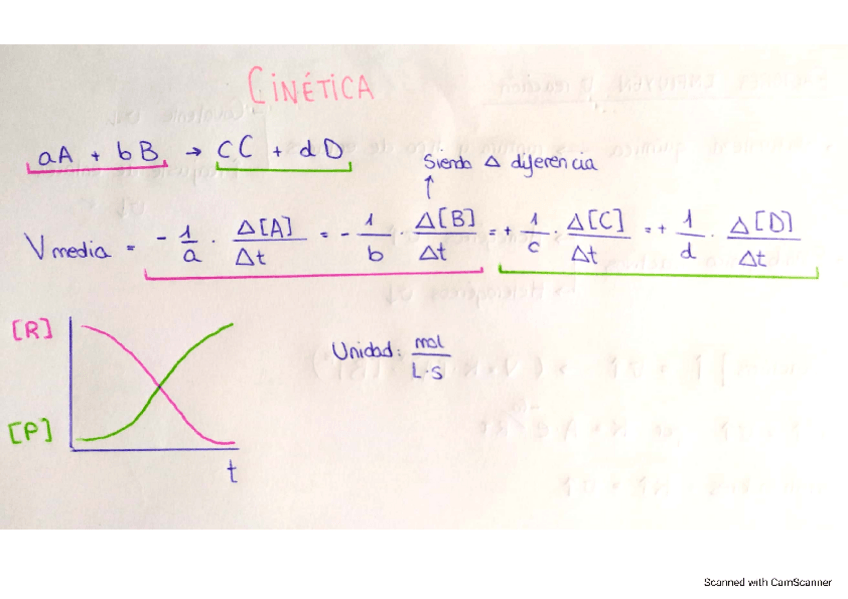 CINÉTICA
aA + bB → CC + dD
Siendo Δ diferencia
↑
Vmedia = - 1/a · Δ[A]/Δt = - 1/b · Δ[B]/Δt = + 1/c · Δ[C]/Δt = + 1/d · Δ[D]/Δt
[R]
Unidad: mol/L·s
[P]
t
Scanned with CamScanner